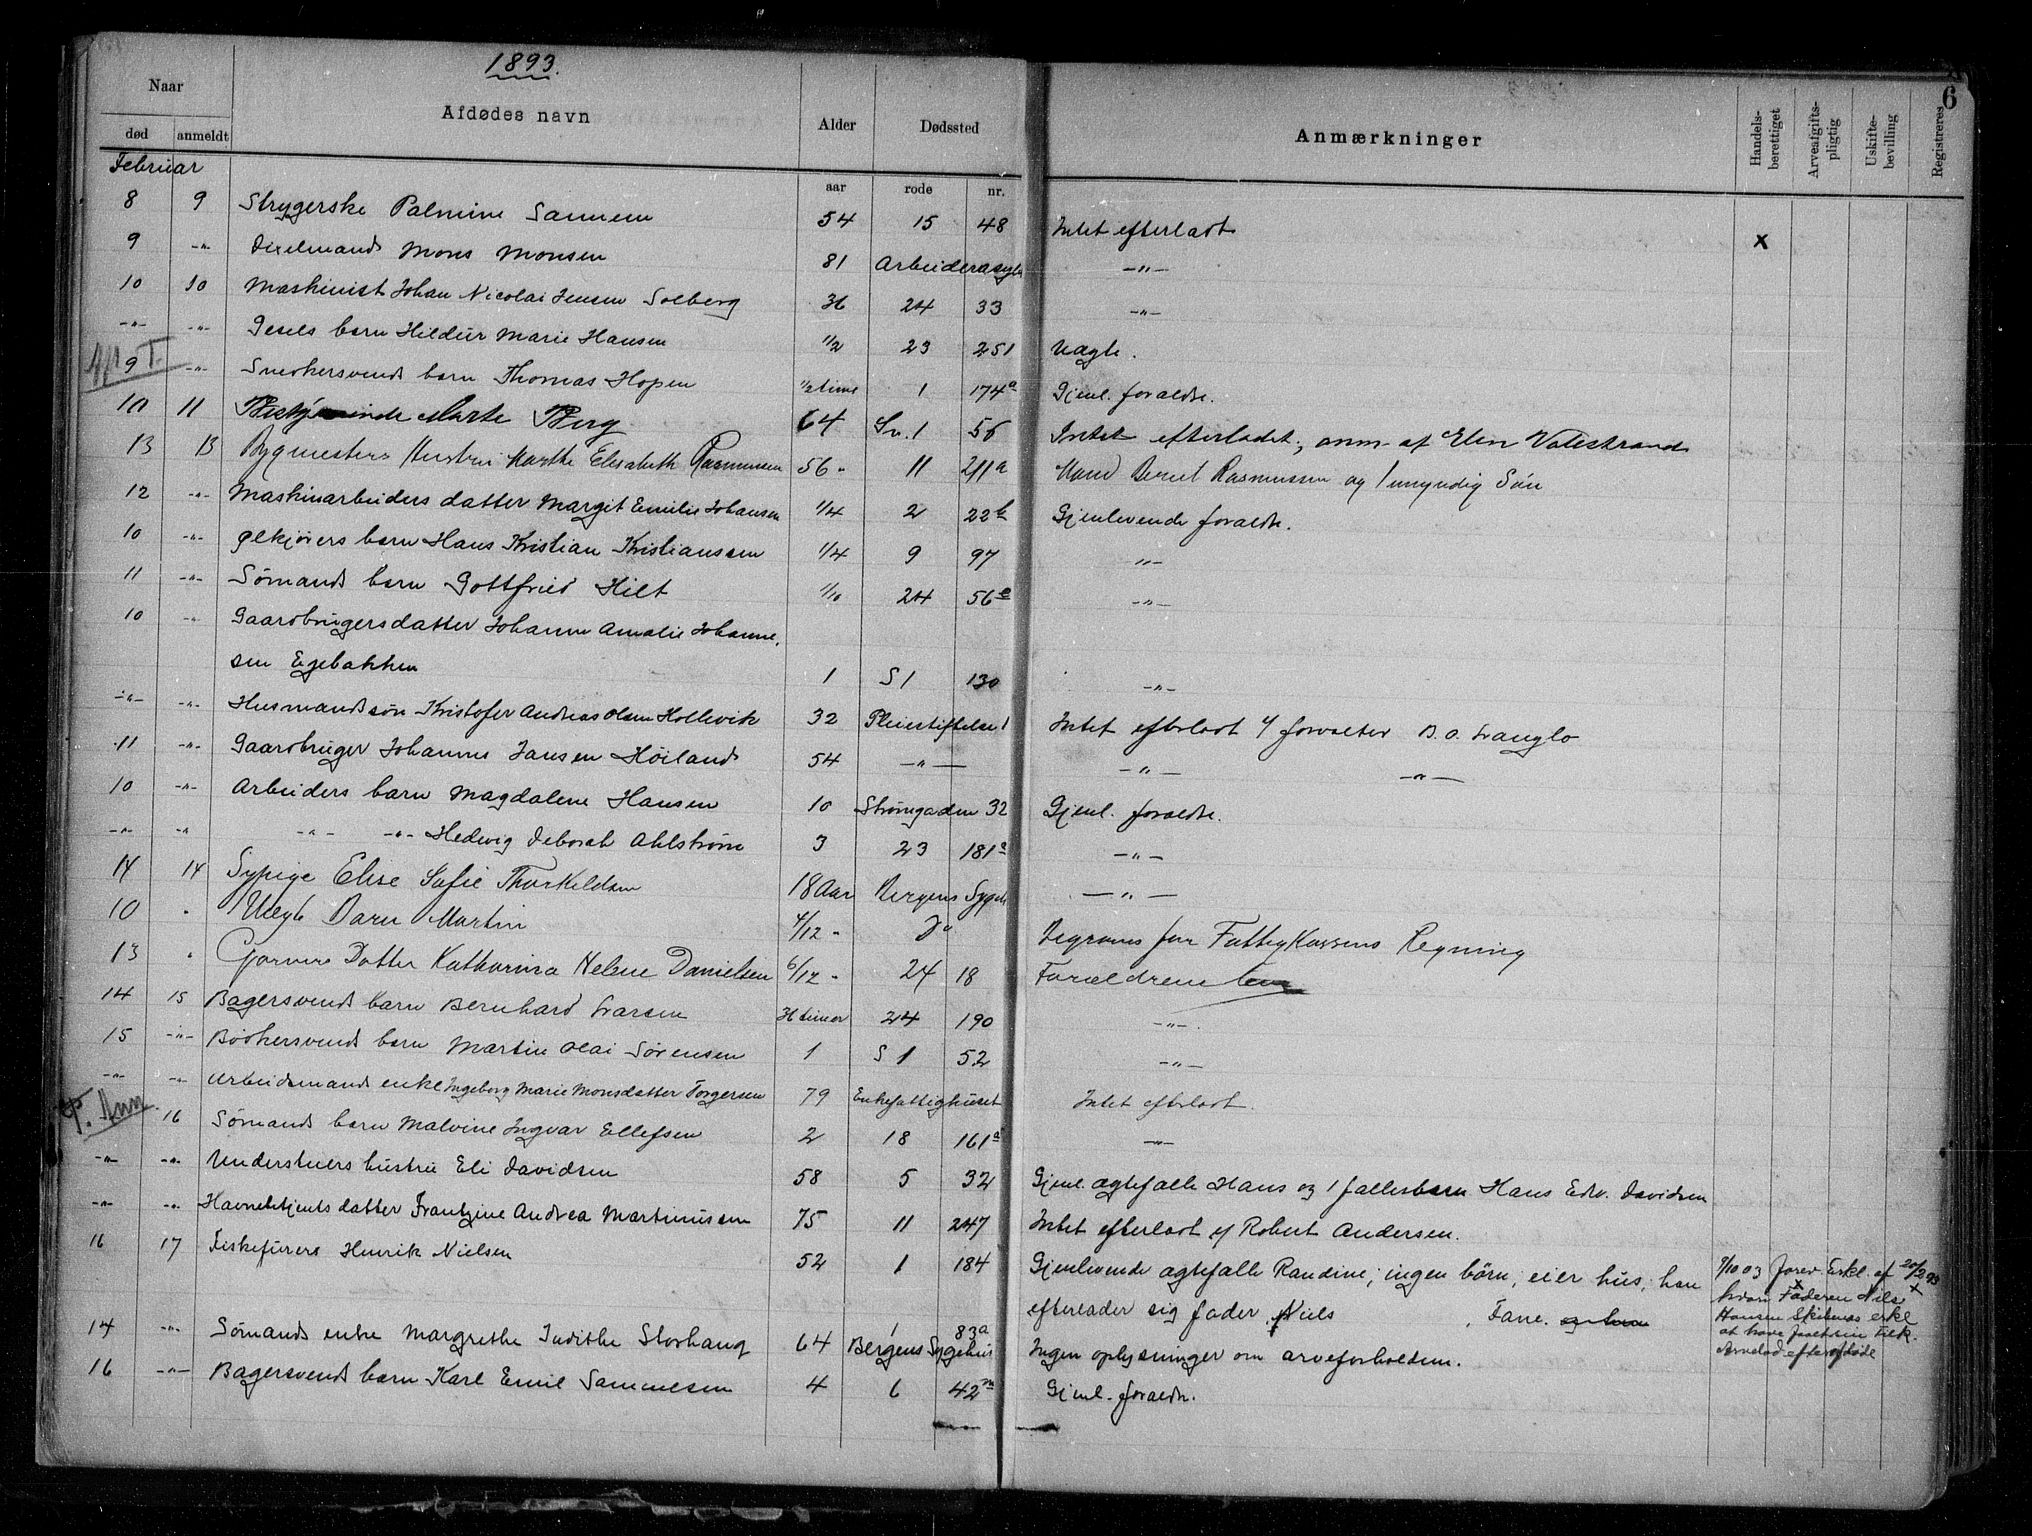 1893.
6
Naar
Afdødes navn
Alder
Dødssted
Anmærkninger
Handels-berettiget
Arveafgifts-pligtig
Uskifte-bevilling
Registreres
død anmeldt
aar rode nr.
Februar
8 9 Strygerske Palmine Sannem 54 15 48 Intet efterladt x
9 -"- Mons Monsen 81 Arbeiderasyl -"-
10 10 Maskinist Johan Nicolai Jensen Solberg 36 24 33 -"-
-"- -"- barn Hildur Marie Hansen 1/2 23 251 Uægte.
9 -"- Snedkersvends barn Thomas Hopen 1/2 time 1 174a Gjenl. forældre.
10 11 Marte Berg 64 Sv. 1 56 Intet efterladet, anm. af Elen Valestrand
13 13 Bygmesters Hustru Marthe Elisabeth Rasmussen 56 - 11 211a Mand Berent Rasmussen og 1 umyndig Søn
12 -"- Maskinarbeiders datter Margit Emilie Johansen 1/4 2 22b Gjenlevende forældre.
10 -"- Ølkjørers barn Hans Kristian Kristianssen 1/4 9 97 -"-
11 -"- Sømands barn Gottfried Hilt 1/10 24 56e -"-
10 -"- Gaardbrugers datter Johanne Amalie Johanne-
sen Egebakken 1 S 1 130 -"-
-"- -"- Husmandssøn Kristofer Andreas Olsen Hollevik 32 Pleiestiftelse 1 Intet efterladt forvalter B. O. Langlo
11 -"- Gaardbruger Johannes Jansen Høiland 54 -"- -"- -"-
10 -"- Arbeiders barn Magdalene Hansen 10 Strømgaden 32 Gjenl. forældre.
-"- -"- -"- -"- Hedevig Deborah Ahlstrøm 3 23 181a -"-
14 14 Sypige Elise Sofie Thorkildsen 18 Aar Bergens Sygeh -"-
10 " Uægte Barn Martin 4/12 - Do Begraves for Fattigkassens Regning
13 " Garvers Datter Katharina Helene Danielsen 6/12 - 24 18 Forældrene
14 15 Bagersvends barn Bernhard Larsen timer 24 190 -"-
15 -"- Bødkersvends barn Martin Olai Sørensen 1 S 1 52 -"-
-"- -"- Arbeidsmands enke Ingeborg Marie Monsdatter Torgersen 79 Enkefattighuset Intet efterladt.
16 Sømands barn Malvine Ingvar Ellefsen 2 18 161a -"-
-"- -"- hustru Eli Davidsen 58 5 32 Gjenl. ægtefælle Hans og 1 fællesbarn Hans Edv. Davidsen
-"- -"- Havnebetjents datter Frantzine Andrea Martinussen 75 11 247 Intet efterladt Robert Andersen.
16 17 Fiskefører Henrik Nielsen 52 1 184 Gjenlevende ægtefælle Randine; ingen børn, eier hus, han
efterlader sig fader Niels , Fane.
7/10 03 forev. Erkl. af 20/2 93
hvori Faderen Nils
Hansen erkl
at have
14 -"- Sømands enke Margrethe Judithe Storhaug 64 1 83a Bergens Sygehus Ingen oplysninger om arveforholdene.
16 -"- Bagersvends barn Karl Emil Sammesen 4 6 42 Gjenl. forældre.